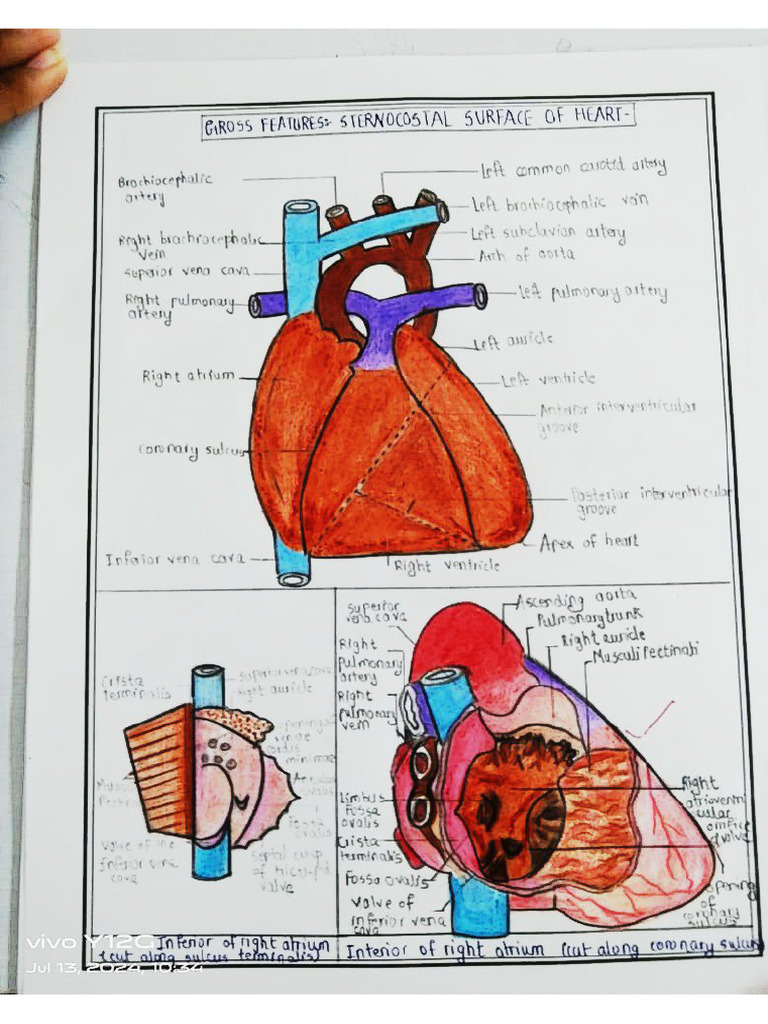 GROSS FEATURES:- STERNOCOSTAL SURFACE OF HEART-
Brachiocephalic
artery
Left common carotid artery
Left brachiocephalic vein
Right brachiocephalic
vein
Left subclavian artery
Arch of aorta
superior vena cava
Right pulmonary
artery
Left pulmonary artery
Left auricle
Right atrium
Left ventricle
Anterior interventricular
groove
coronary sulcus
Posterior interventricular
groove
Apex of heart
Inferior vena cava
Right ventricle
Crista
terminalis
superior vena cava
right auricle
openings of
venae
cordis
minimae
fossa
ovalis
valve of the
Inferior vena
cava
septal cusp
of tricuspid
valve
Interior of right atrium
(cut along sulcus terminalis)
superior
vena cava
Ascending aorta
Pulmonary trunk
Right auricle
Musculi Pectinati
Right
pulmonary
artery
Right
pulmonary
vein
Limbus
Fossa
ovalis
Crista
terminalis
Fossa ovalis
valve of
inferior vena
cava
Right
atrioventri
cular
orifice
&valve
opening
of
coronary
sulcus
Interior of right atrium (cut along coronary sulcus)
vivo Y12G
Jul 13, 2024, 10:34